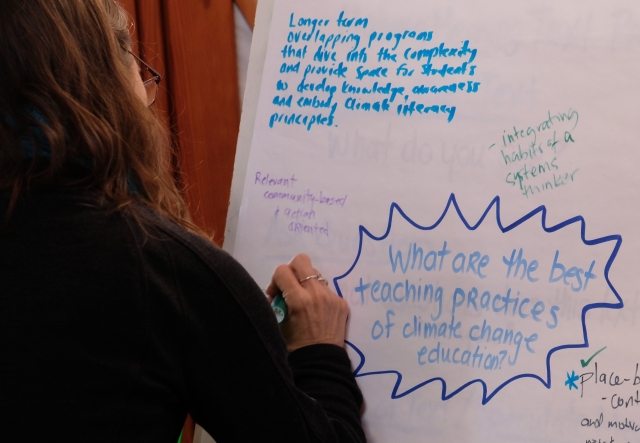 Longer term
overlapping programs
that dive into the complexity
and provide space for students
to develop knowledge, awareness
and embody climate literacy
principles.
- integrating
habits of a
systems
thinker
Relevant
community-based
+ action
oriented
What are the best
teaching practices
of climate change
education?
What do you
✓
* place-b
- cont
and motiv